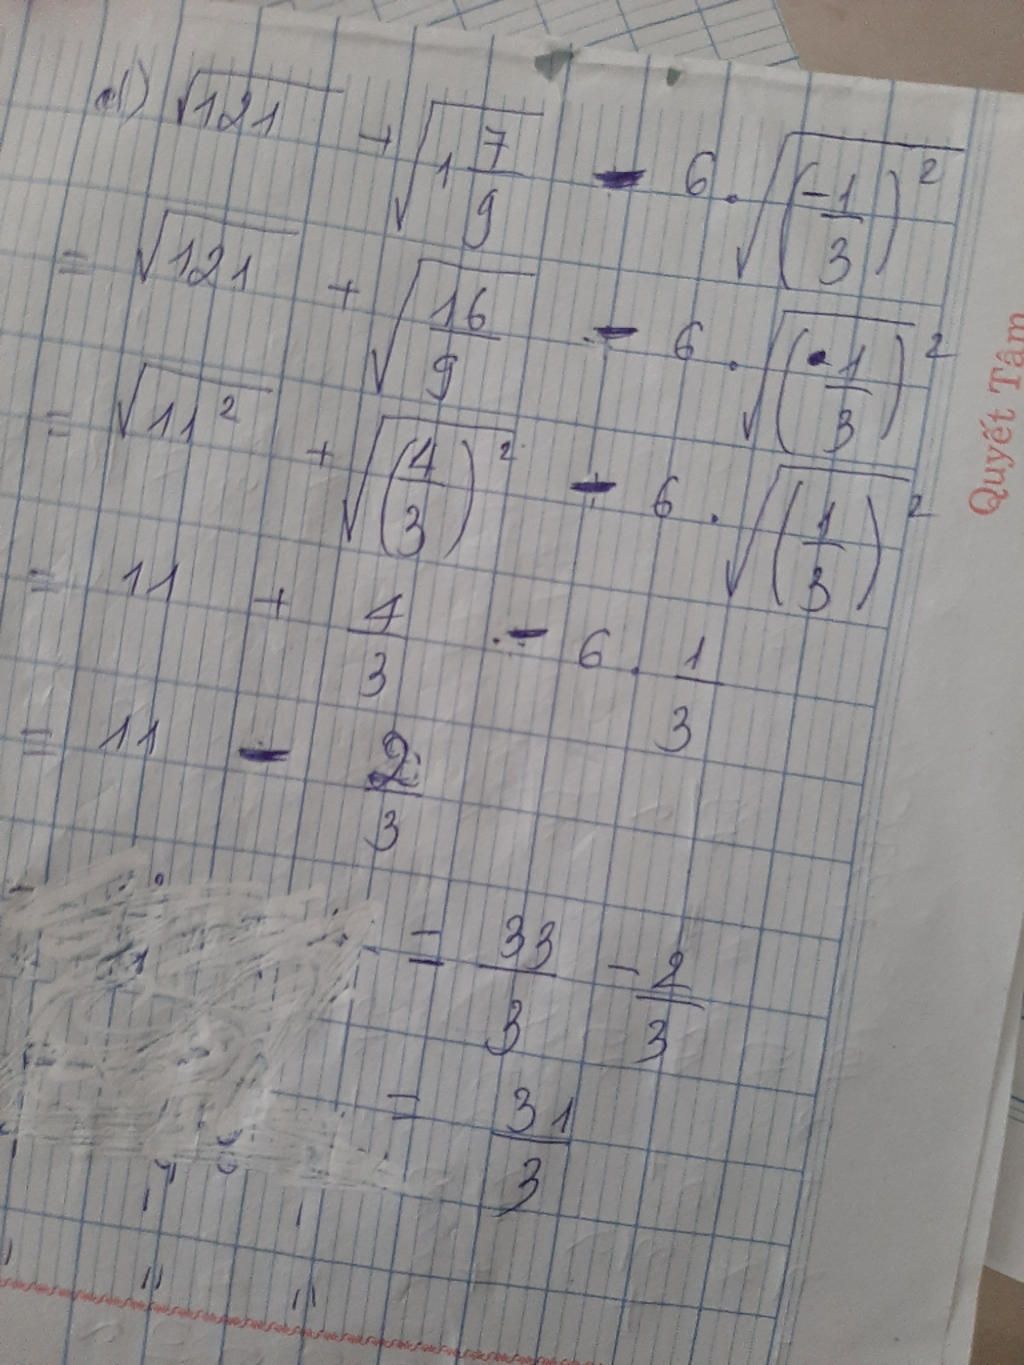 d) √121 + √(1 7/9) - 6 . √((-1/3)²)
= √121 + √(16/9) - 6 . √((-1/3)²)
= √(11²) + √((4/3)²) - 6 . √((1/3)²)
= 11 + 4/3 - 6 . 1/3
= 11 - 2/3
= 33/3 - 2/3
= 31/3
Quyết Tâm